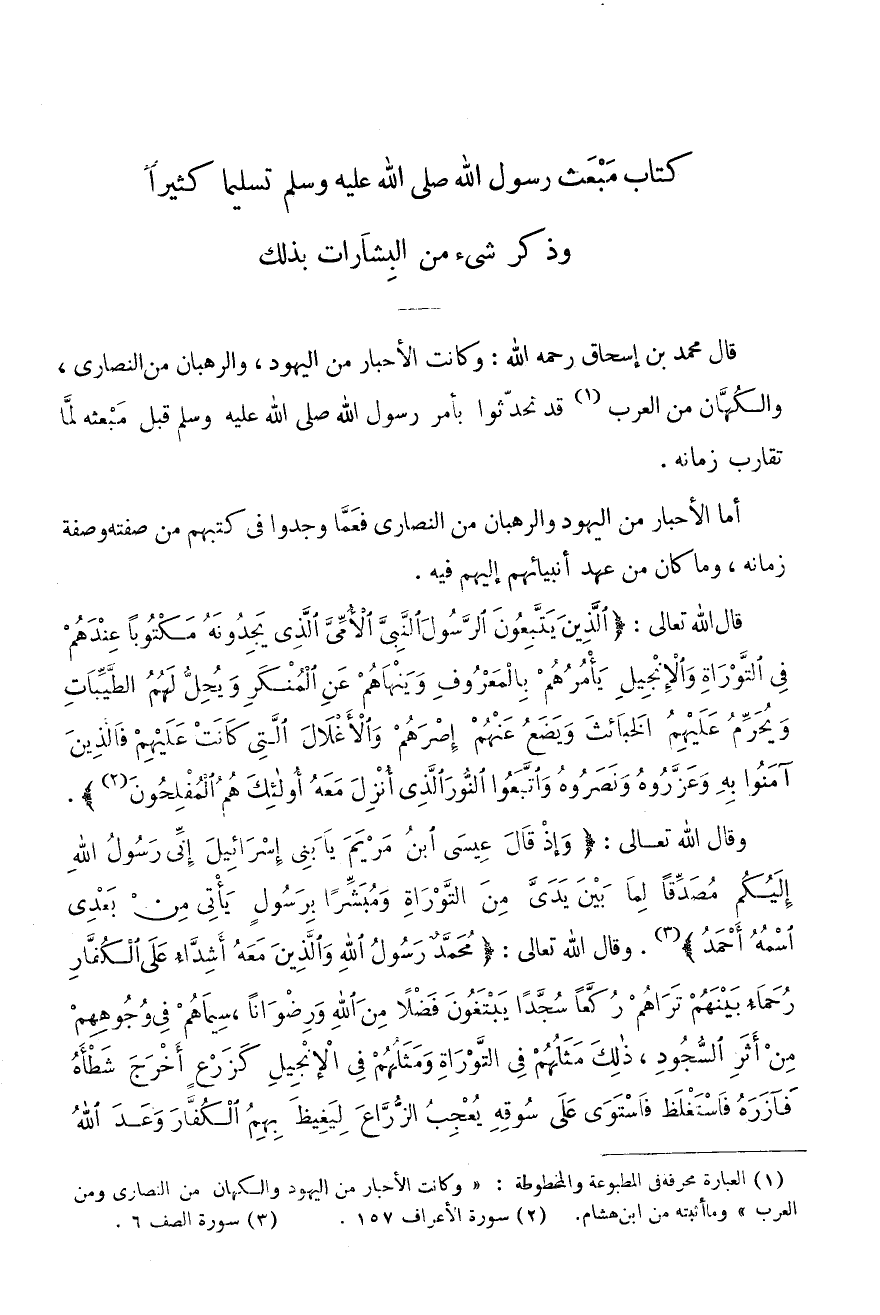 كتاب مَبْعَث رسول الله صلى الله عليه وسلم تسليما كثيراً
وذكر شىء من البِشَارات بذلك
قال محمد بن إسحاق رحمه الله : وكانت الأحبار من اليهود ، والرهبان من النصارى ،
والكُهَّان من العرب (١) قد تحدّثوا بأمر رسول الله صلى الله عليه وسلم قبل مَبْعثه لمَّا
تقارب زمانه .
أما الأحبار من اليهود والرهبان من النصارى فعَمَّا وجدوا فى كتبهم من صفته وصفة
زمانه ، وما كان من عهد أنبيائهم إليهم فيه .
قال الله تعالى : ﴿ ٱلَّذِينَ يَتَّبِعُونَ ٱلرَّسُولَ ٱلنَّبِيَّ ٱلْأُمِّيَّ ٱلَّذِى يَجِدُونَهُ مَكْتُوباً عِنْدَهُمْ
فِى ٱلتَّوْرَاةِ وَٱلْإِنْجِيلِ يَأْمُرُهُمْ بِالْمَعْرُوفِ وَيَنْهَاهُمْ عَنِ ٱلْمُنْكَرِ وَيُحِلُّ لَهُمُ الطَّيِّبَاتِ
وَيُحَرِّمُ عَلَيْهِمُ الخَبَائثَ وَيَضَعُ عَنْهُمْ إِصْرَهُمْ وَٱلْأَغْلَالَ ٱلَّتِى كَانَتْ عَلَيْهِمْ فَالَّذِينَ
آمَنُوا بِهِ وَعَزَّرُوهُ وَنَصَرُوهُ وَٱتَّبَعُوا ٱلنُّورَ ٱلَّذِى أُنْزِلَ مَعَهُ أُولٰئِكَ هُمُ ٱلْمُفْلِحُونَ (٢) ﴾ .
وقال الله تعالى : ﴿ وَإِذْ قَالَ عِيسَى ٱبنُ مَرْيَمَ يَا بَنِى إِسْرَائِيلَ إِنِّى رَسُولُ اللهِ
إِلَيْكُم مُصَدِّقاً لِمَا بَيْنَ يَدَىَّ مِنَ التَّوْرَاةِ وَمُبَشِّرًا بِرَسُولٍ يَأْتِى مِنْ بَعْدِى
ٱسْمُهُ أَحْمَدُ ﴾ (٣) . وقال الله تعالى : ﴿ مُحَمَّدٌ رَسُولُ اللهِ وَالَّذِينَ مَعَهُ أَشِدَّاءُ عَلَى ٱلْكُفَّارِ
رُحَمَاءُ بَيْنَهُمْ تَرَاهُمْ رُكَّعاً سُجَّدًا يَبْتَغُونَ فَضْلًا مِنَ اللهِ وَرِضْوَاناً ، سِيمَاهُمْ فِى وُجُوهِهِمْ
مِنْ أَثَرِ ٱلسُّجُودِ ، ذٰلِكَ مَثَلُهُمْ فِى التَّوْرَاةِ وَمَثَلُهُمْ فِى ٱلْإِنْجِيلِ كَزَرْعٍ أَخْرَجَ شَطْأَهُ
فَآزَرَهُ فَاسْتَغْلَظَ فَاسْتَوَى عَلَى سُوقِهِ يُعْجِبُ الزُّرَّاعَ لِيَغِيظَ بِهِمُ ٱلْكُفَّارَ وَعَدَ اللهُ
(١) العبارة محرفة فى المطبوعة والمخطوطة : « وكانت الأحبار من اليهود والكهان من النصارى ومن
العرب » وما أثبته من ابن هشام . (٢) سورة الأعراف ١٥٧ . (٣) سورة الصف ٦ .